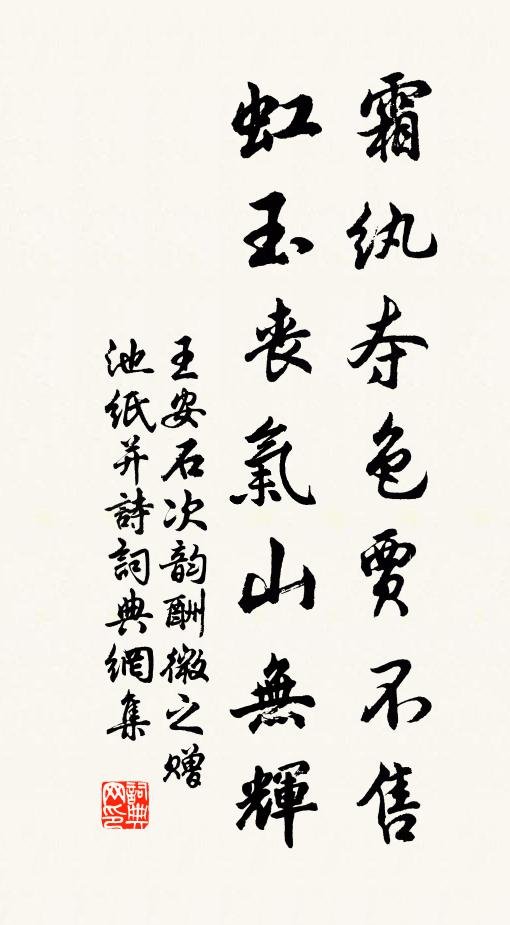 霜纨夺色賈不售
虹玉喪氣山無輝
王安石次韵酬微之赠
池纸并詩詞典網集
詞典网印